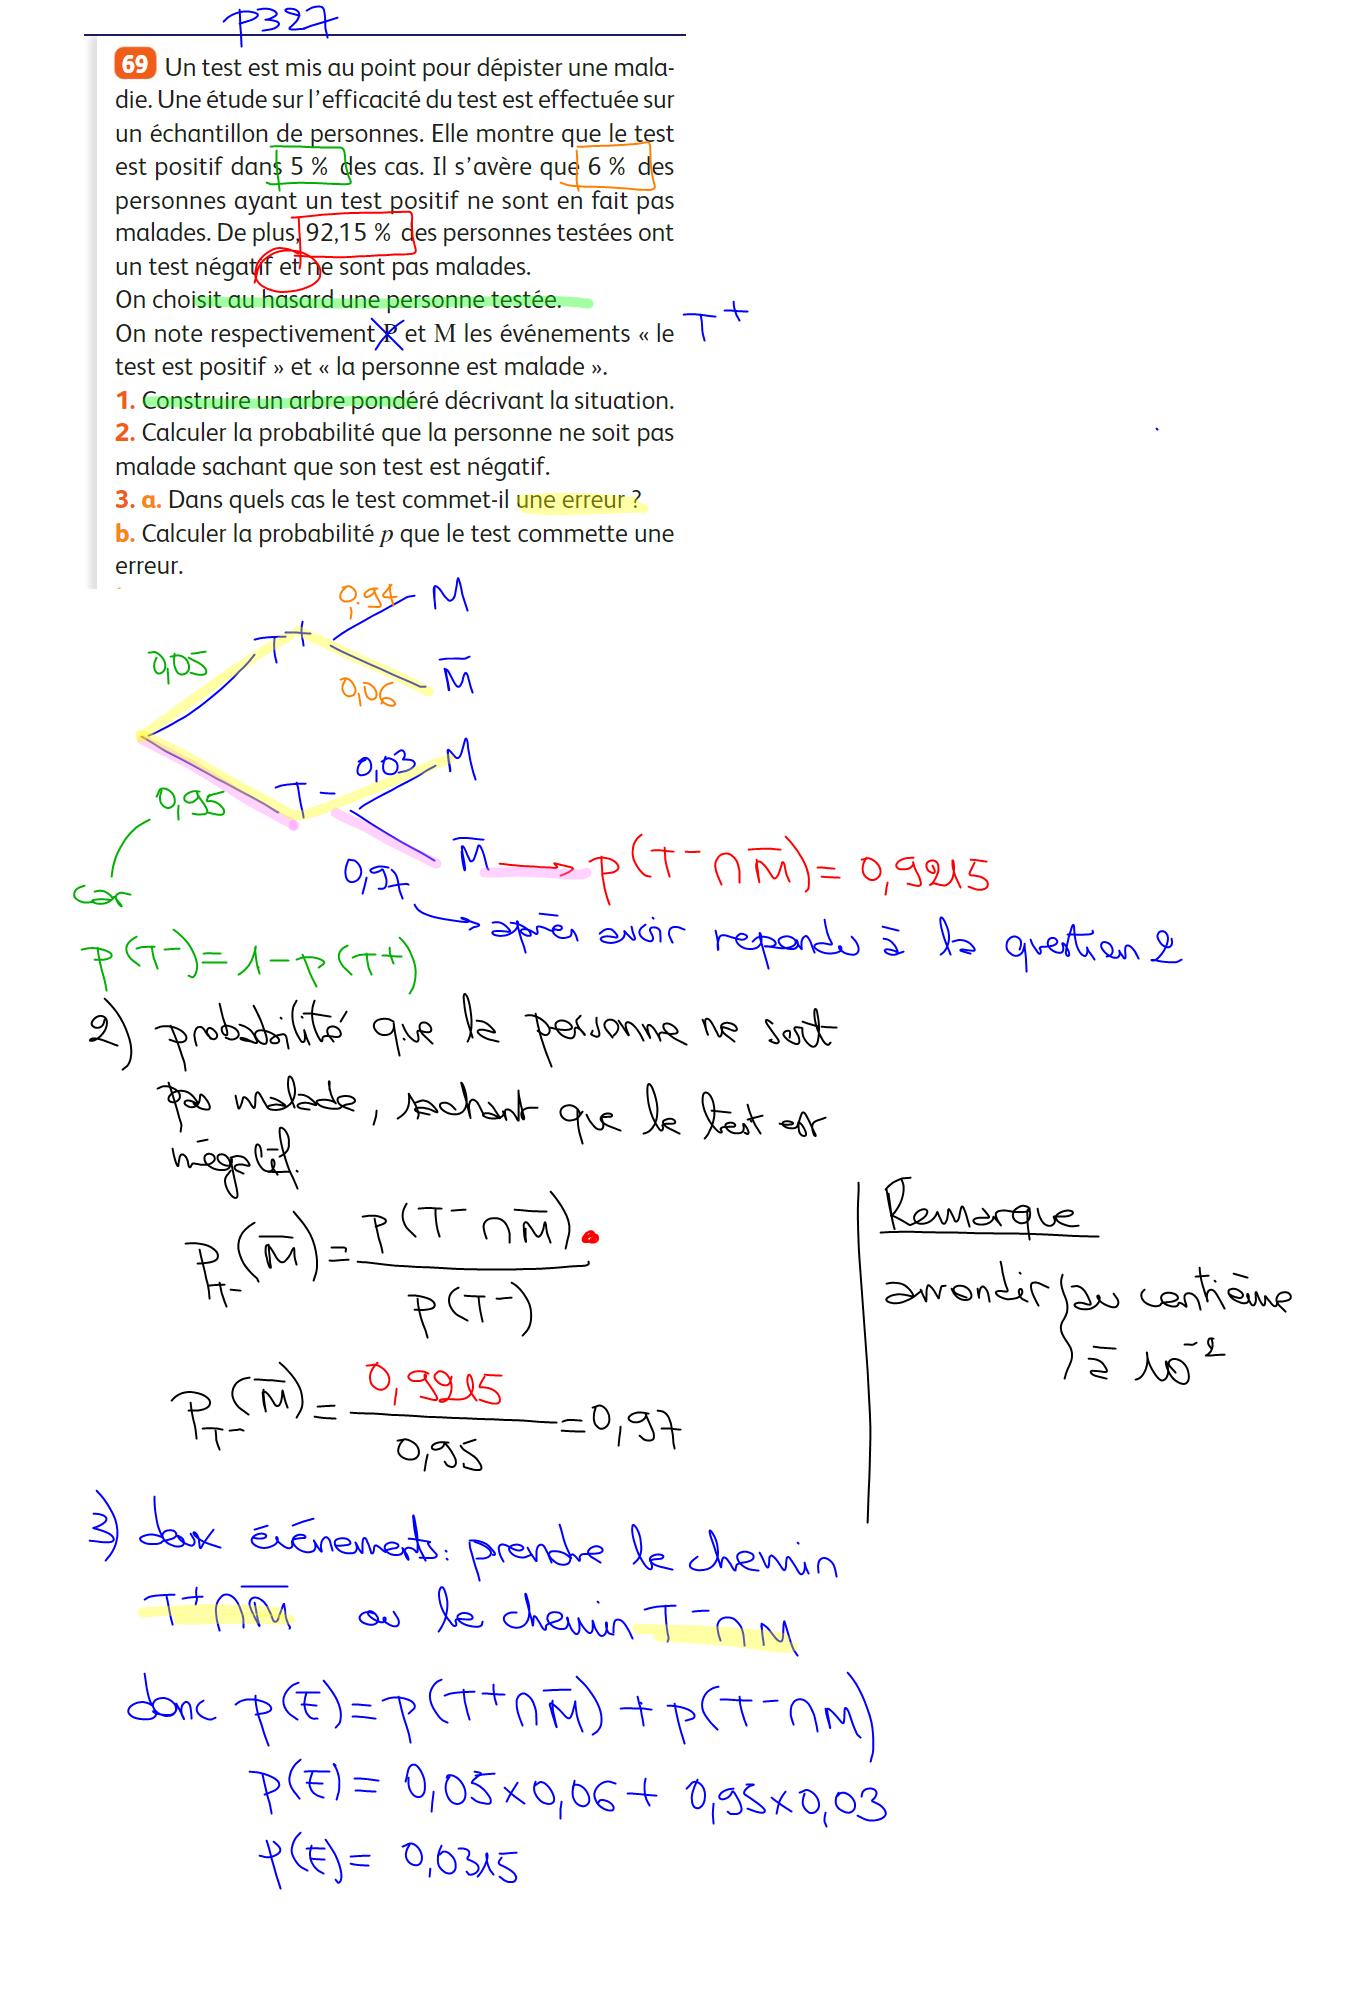 p327
69 Un test est mis au point pour dépister une mala-
die. Une étude sur l'efficacité du test est effectuée sur
un échantillon de personnes. Elle montre que le test
est positif dans 5 % des cas. Il s'avère que 6 % des
personnes ayant un test positif ne sont en fait pas
malades. De plus, 92,15 % des personnes testées ont
un test négatif et ne sont pas malades.
On choisit au hasard une personne testée.
On note respectivement P et M les événements « le
T+
test est positif » et « la personne est malade ».
1. Construire un arbre pondéré décrivant la situation.
2. Calculer la probabilité que la personne ne soit pas
malade sachant que son test est négatif.
3. a. Dans quels cas le test commet-il une erreur ?
b. Calculer la probabilité p que le test commette une
erreur.
0,94 M
0,05 T+
0,06 M̅
0,03 M
0,95 T-
0,97 M̅ → p(T- ∩ M̅) = 0,9215
car
→ après avoir repondu à la question 2
p(T-) = 1 - p(T+)
2) probabilité que la personne ne soit
pas malade, sachant que le test est
négatif.
p_T-(M̅) = p(T- ∩ M̅) / p(T-)
p_T-(M̅) = 0,9215 / 0,95 = 0,97
Remarque
arrondir au centième
à 10⁻²
3) deux événements : prendre le chemin
T+ ∩ M̅ ou le chemin T- ∩ M
donc p(E) = p(T+ ∩ M̅) + p(T- ∩ M)
p(E) = 0,05 × 0,06 + 0,95 × 0,03
p(E) = 0,0315